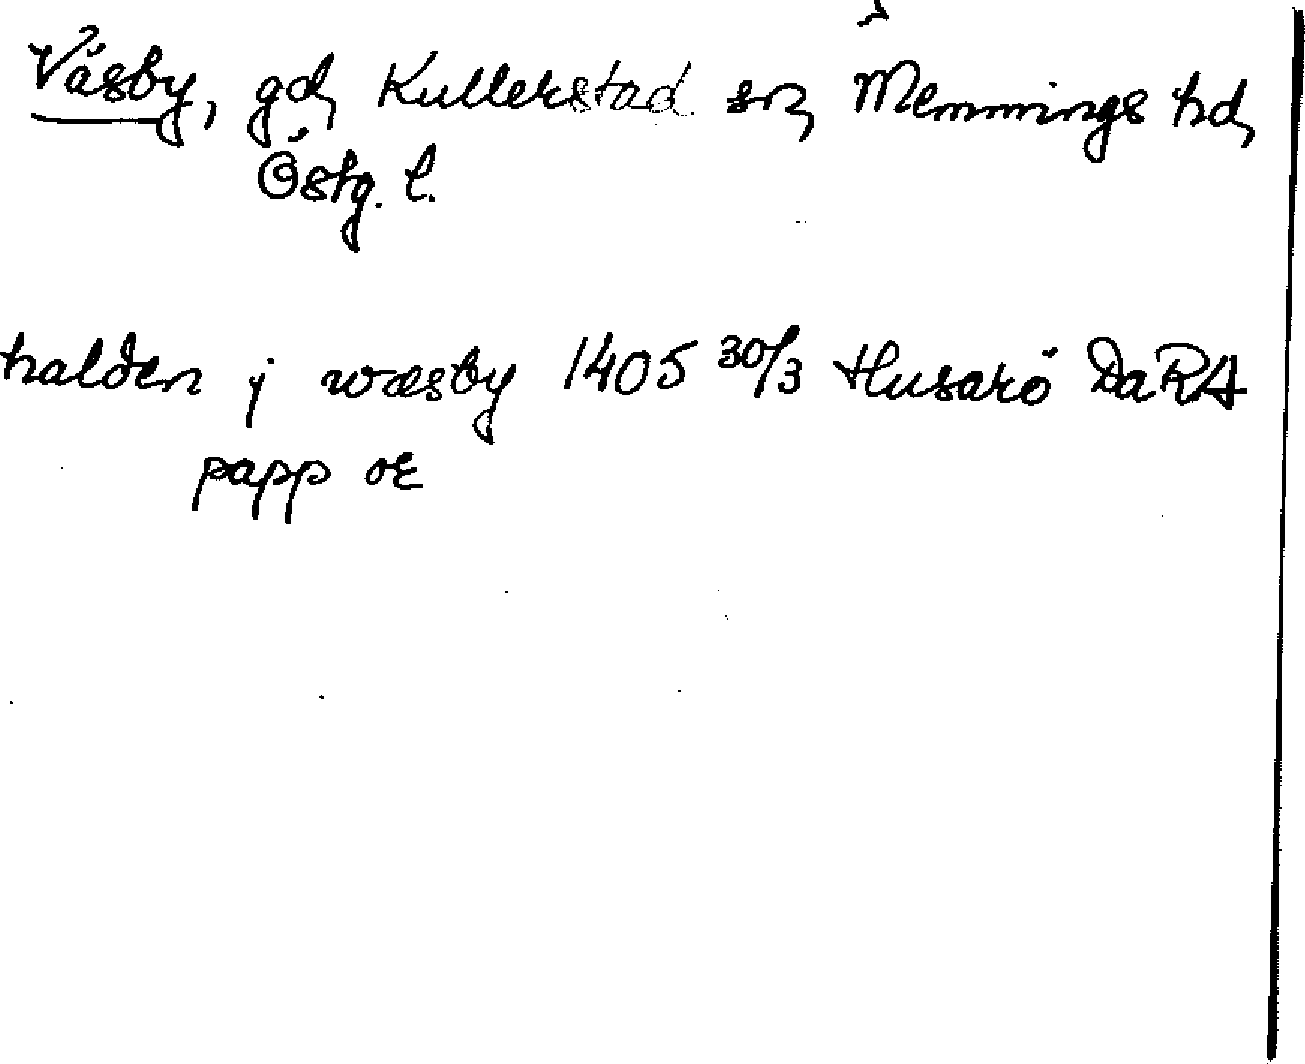 Väsby, gd, Kullerstad sn, Memmings hd,
Östg. l.
halden j wæsby 1405 30/3 Husarö DaRA
papp or